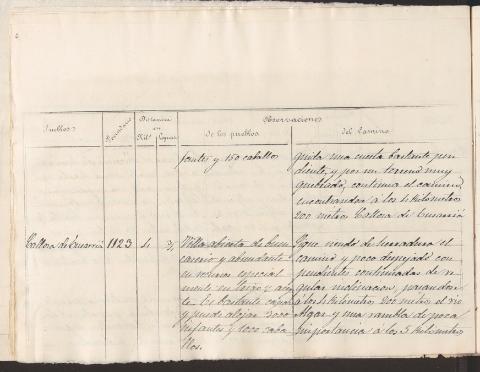 Pueblos
Vecindario
Distancia
en
Kils
Leguas
Observaciones
De los pueblos
Del Camino
fantes y 150 caballos
quita una cuesta bastante pen
diente, y por un terreno muy
quebrado, continua el camino,
encontrandose á los 4 kilometros
200 metros Callosa de Ensarriá
Callosa de Ensarriá 1123 4
Villa abierta de buen
caserio y abundante
en recursos especial
mente en trigo y acei
te. Es bastante capaz
y puede alojar 3000
infantes y 1000 caba
llos.
Sigue siendo de herradura el
camino y poco despejado con
pendientes continuadas de re
gular inclinacion, pasandose
á los 4 kilometros 200 metros el rio
Algar y una rambla de poca
importancia á los 5 kilometros